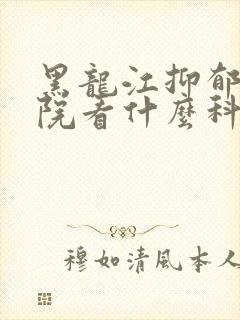 黑龍江抑郁
院看什麼科
穆如清風本人